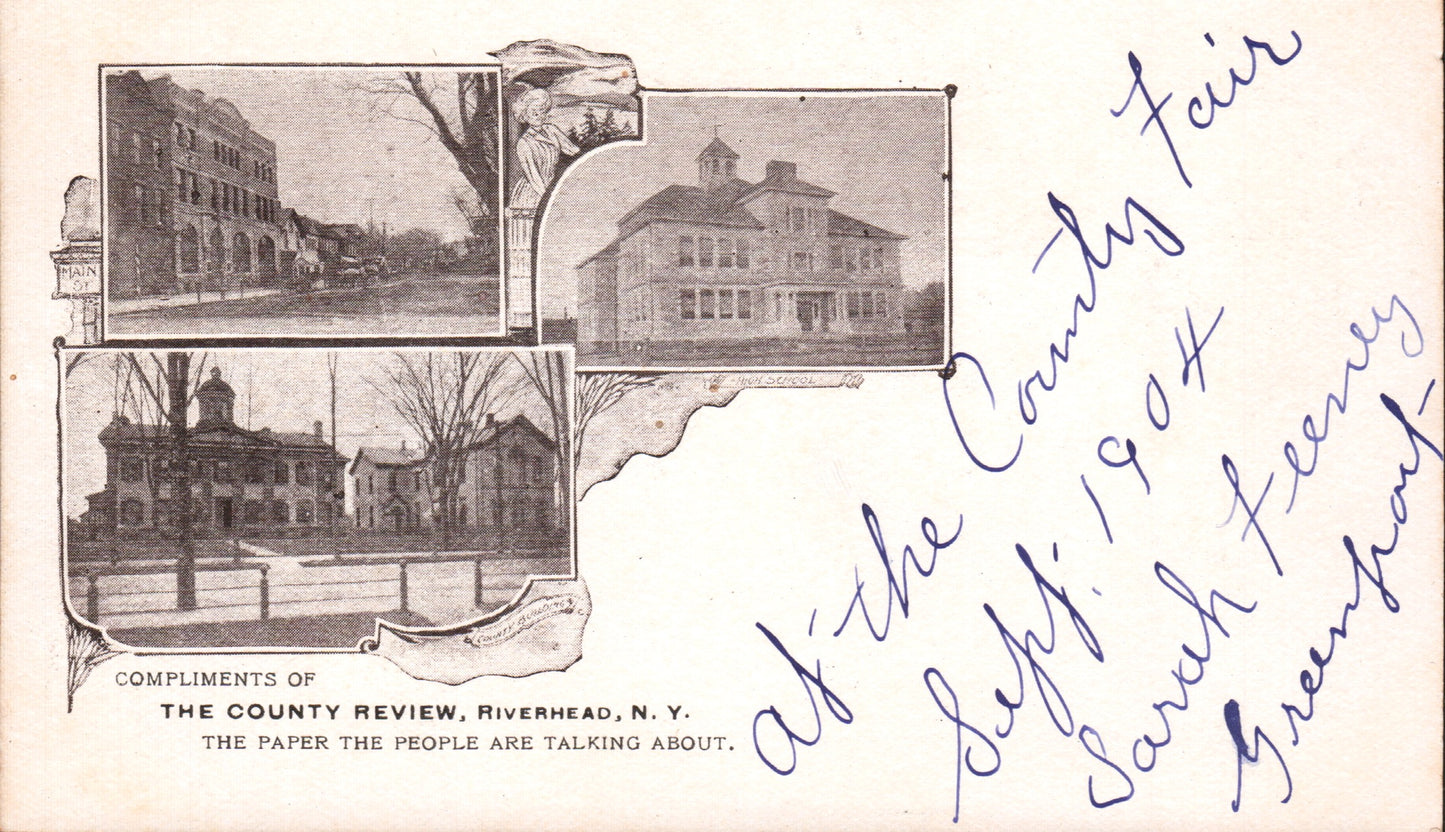 MAIN
ST
HIGH SCHOOL
COUNTY BUILDINGS
COMPLIMENTS OF
THE COUNTY REVIEW, RIVERHEAD, N. Y.
THE PAPER THE PEOPLE ARE TALKING ABOUT.
at the County Fair
Sept. 1904
Sarah Feeney
Greenport